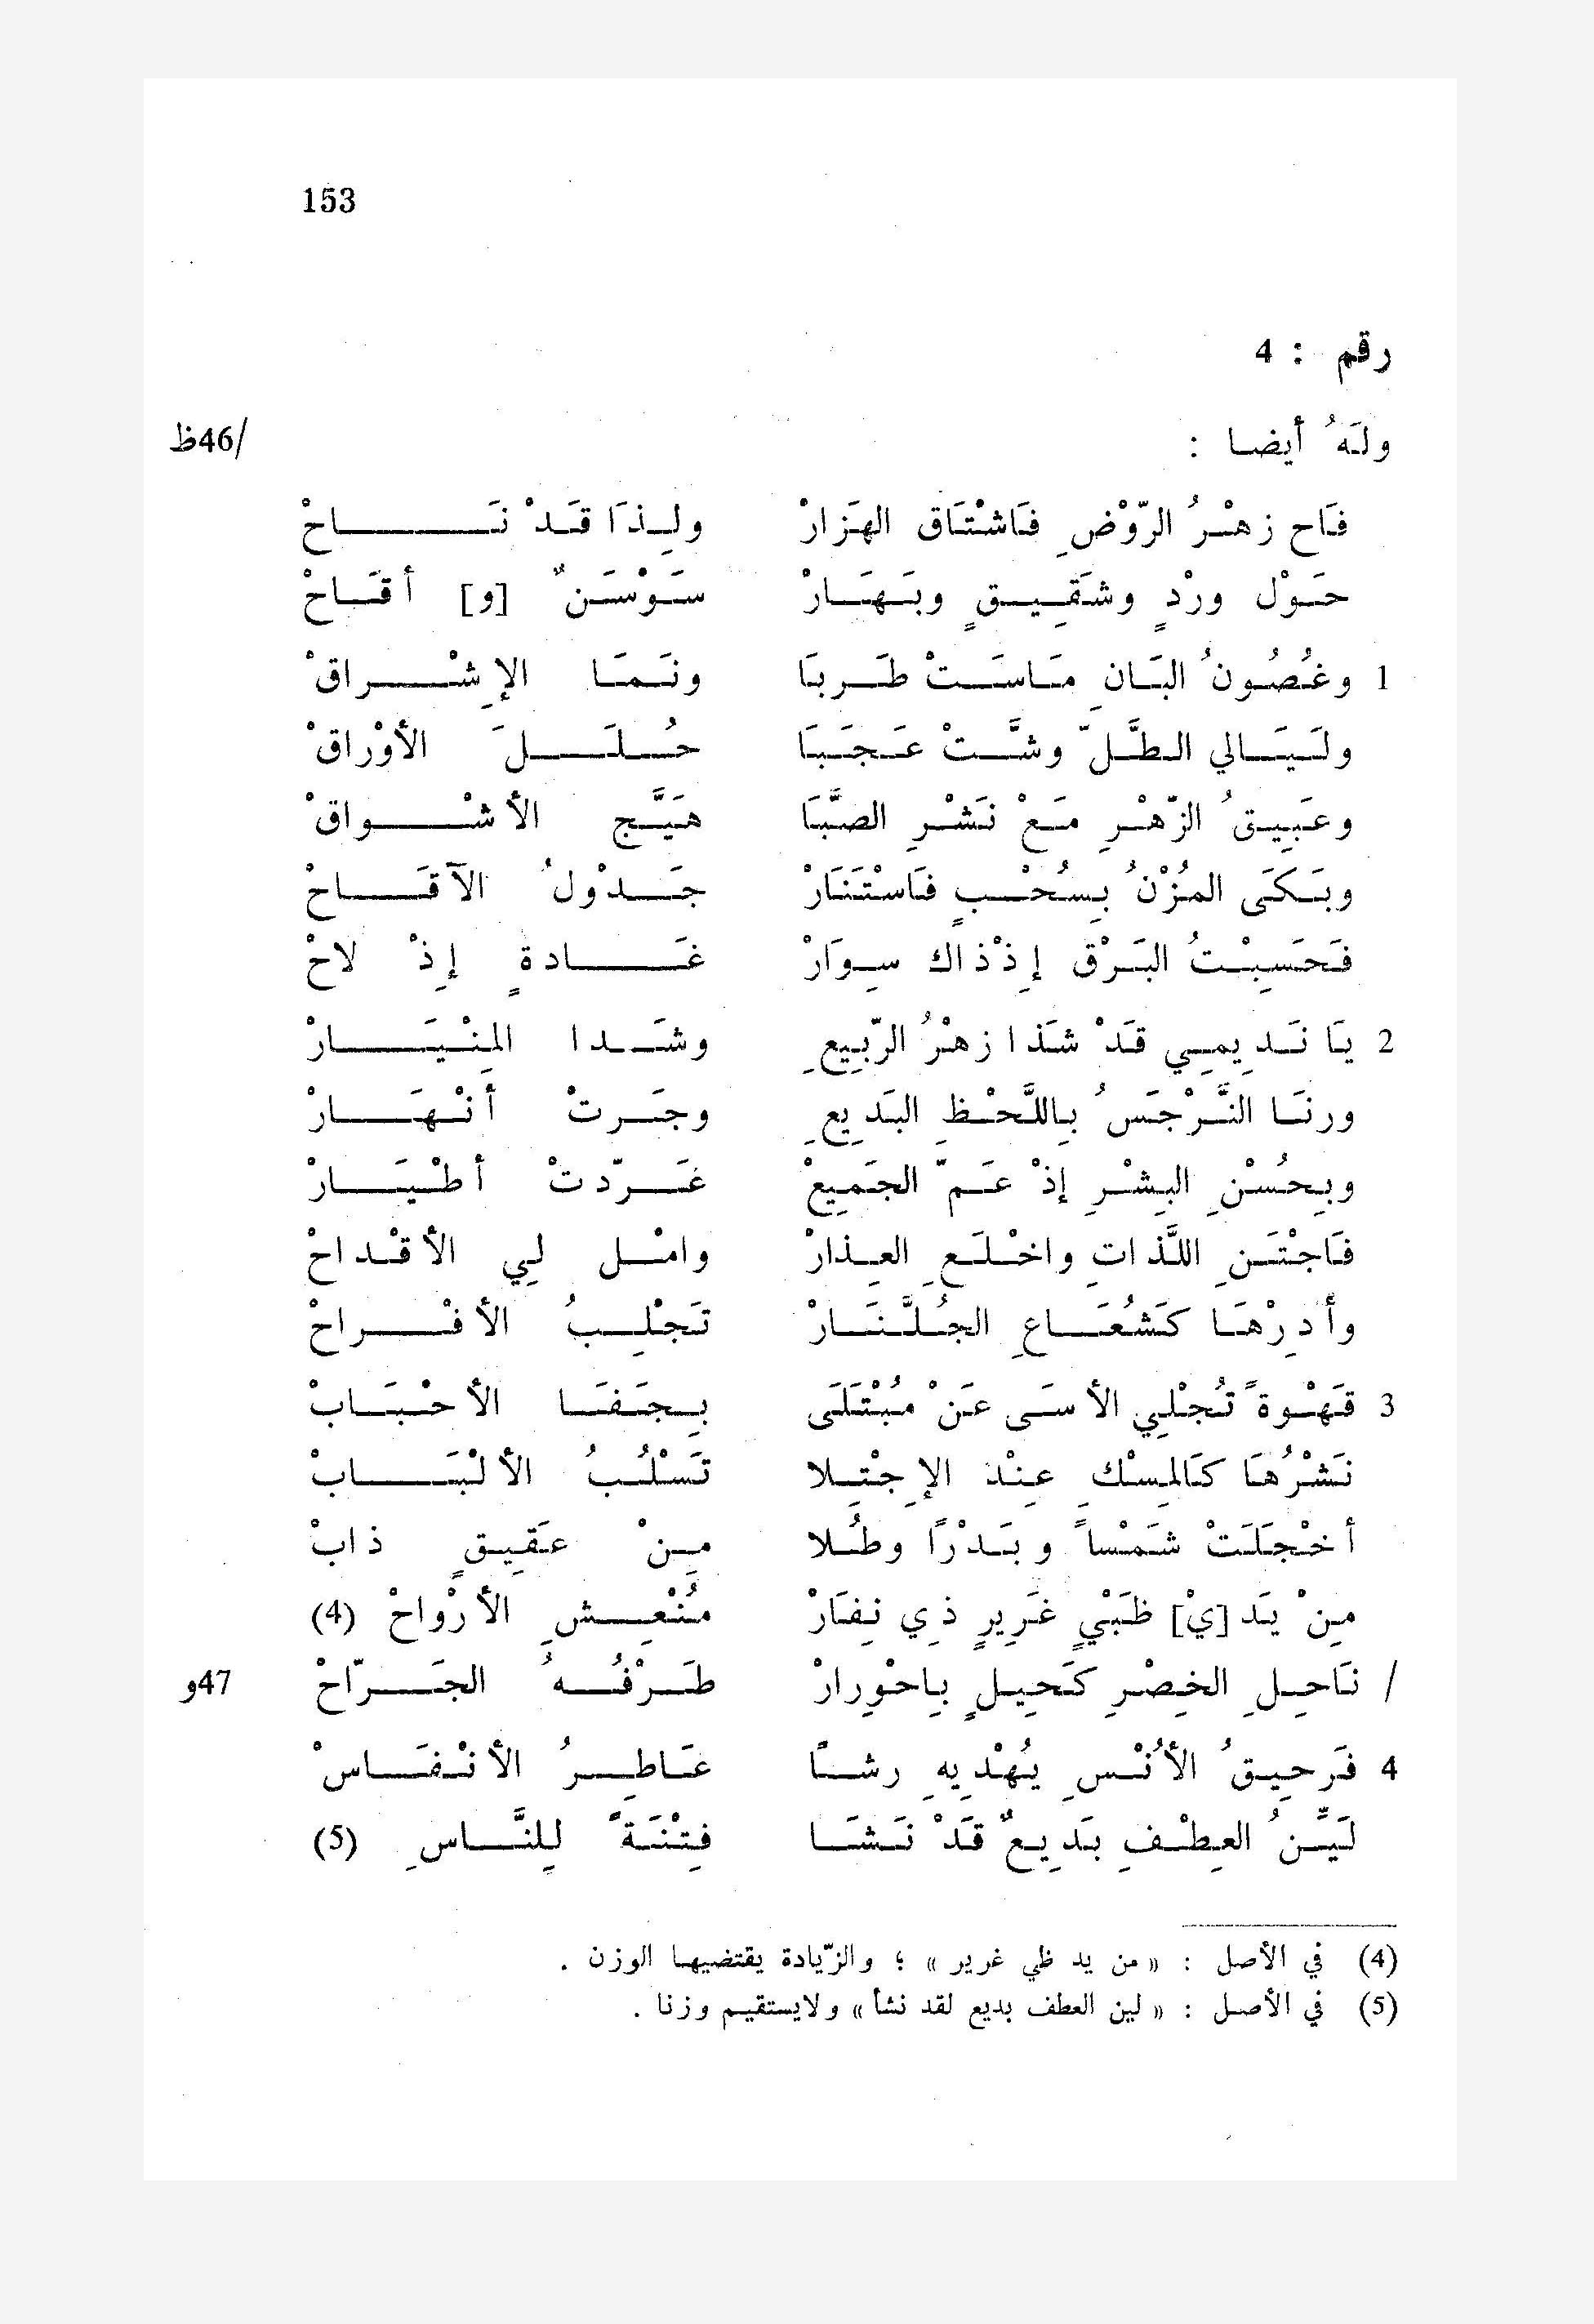 153
رقم : 4
ولَهُ أيضا : /46ظ
فَاح زهْرُ الرّوْضِ فَاشْتَاق الهَزارْ ولِذَا قَدْ نَاحْ
حَوْل ورْدٍ وشَقِيقٍ وبَهَارْ سَوْسَنٌ [و] أقَاحْ
1 وغُصُونُ البَانِ مَاسَتْ طَربَا ونَمَا الإِشْراقْ
ولَيَالي الطَّلّ وشَّتْ عَجَبَا حُلَلَ الأوْراقْ
وعَبِيقُ الزّهْرِ مَعْ نَشْرِ الصَّبَا هَيَّج الأشْواقْ
وبَكَى المُزْنُ بِسُحْبٍ فَاسْتَنَارْ جَدْولُ الآقَاحْ
فَحَسِبْتُ البَرْق إِذْذاك سِوَارْ غَادةٍ إِذْ لاحْ
2 يَا نَدِيمِي قَدْ شَذا زهْرُ الرّبِيعِ وشَدا المِنْيَارْ
ورنَا النَّرْجَسُ بِاللَّحْظِ البَدِيعِ وجَرتْ أنْهَارْ
وبِحُسْنِ البِشْرِ إذْ عَمّ الجَمِيعْ غَرّدتْ أطْيَارْ
فَاجْتَنِ اللَّذاتِ واخْلَعِ العِذارْ وامْل لِي الأقْداحْ
وأدِرْهَا كَشُعَاعِ الجُلَّنَارْ تَجْلِبُ الأفْراحْ
3 قَهْوةً تُجْلِي الأسَى عَنْ مُبْتَلَى بِجَفَا الأحْبَابْ
نَشْرُهَا كَالمِسْكِ عِنْد الإِجْتِلا تَسْلُبُ الألْبَابْ
أخْجَلَتْ شَمْساً وبَدْرًا وطُلا مِنْ عَقِيقٍ ذابْ
مِنْ يَد[يْ] ظَبْيٍ غَرِيرٍ ذِي نِفَارْ مُنْعِشِ الأرْواحْ (4)
/ نَاحِلِ الخِصْرِ كَحِيلٍ بِاحْوِرارْ طَرْفُهُ الجَرّاحْ 47و
4 فَرحِيقُ الأُنْسِ يُهْدِيهِ رشًا عَاطِرُ الأنْفَاسْ
لَيِّنُ العِطْفِ بَدِيعٌ قَدْ نَشَا فِتْنَةً لِلنَّاسِ (5)
(4) في الأصل : « من يد ظي غرير » ؛ والزّيادة يقتضيها الوزن .
(5) في الأصل : « لين العطف بديع لقد نشأ » ولايستقيم وزنا .